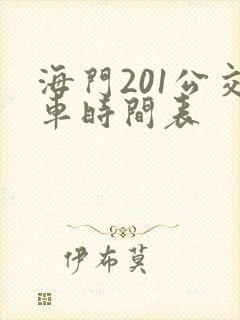 海門201公交
車時間表
伊布莫